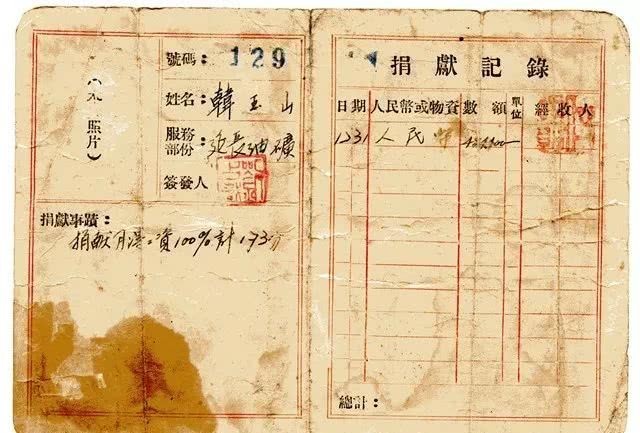 號碼：129
姓名：韓玉山
服務部份：延長油礦
簽發人
照片）
捐獻事蹟：
捐獻月
資100%計
捐獻記錄
日期 人民幣或物資 數額 單位 經收人
1231 人民幣
總計：